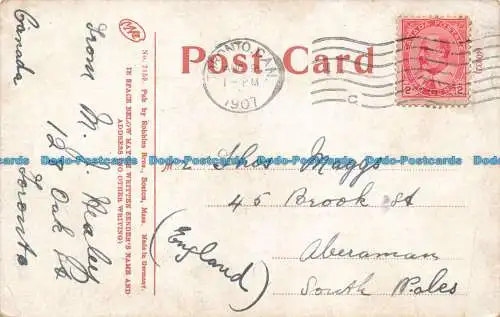 Post Card
TORONTO. CAN.
1-PM
1907
C
CANADA POSTAGE
2 2
No. 7159. Pub by Robbins Bros., Boston, Mass. Made in Germany.
IN SPACE BELOW MAY BE WRITTEN SENDER'S NAME AND
ADDRESS (NO OTHER WRITING)
From M. J. Healey
128 Oak St
Toronto
Canada
Mr Thos Maggs
45 Brook St
Aberaman
South Wales
(England)
Dado-Postcards Dado-Postcards Dado-Postcards Dado-Postcards Dado-Postcards